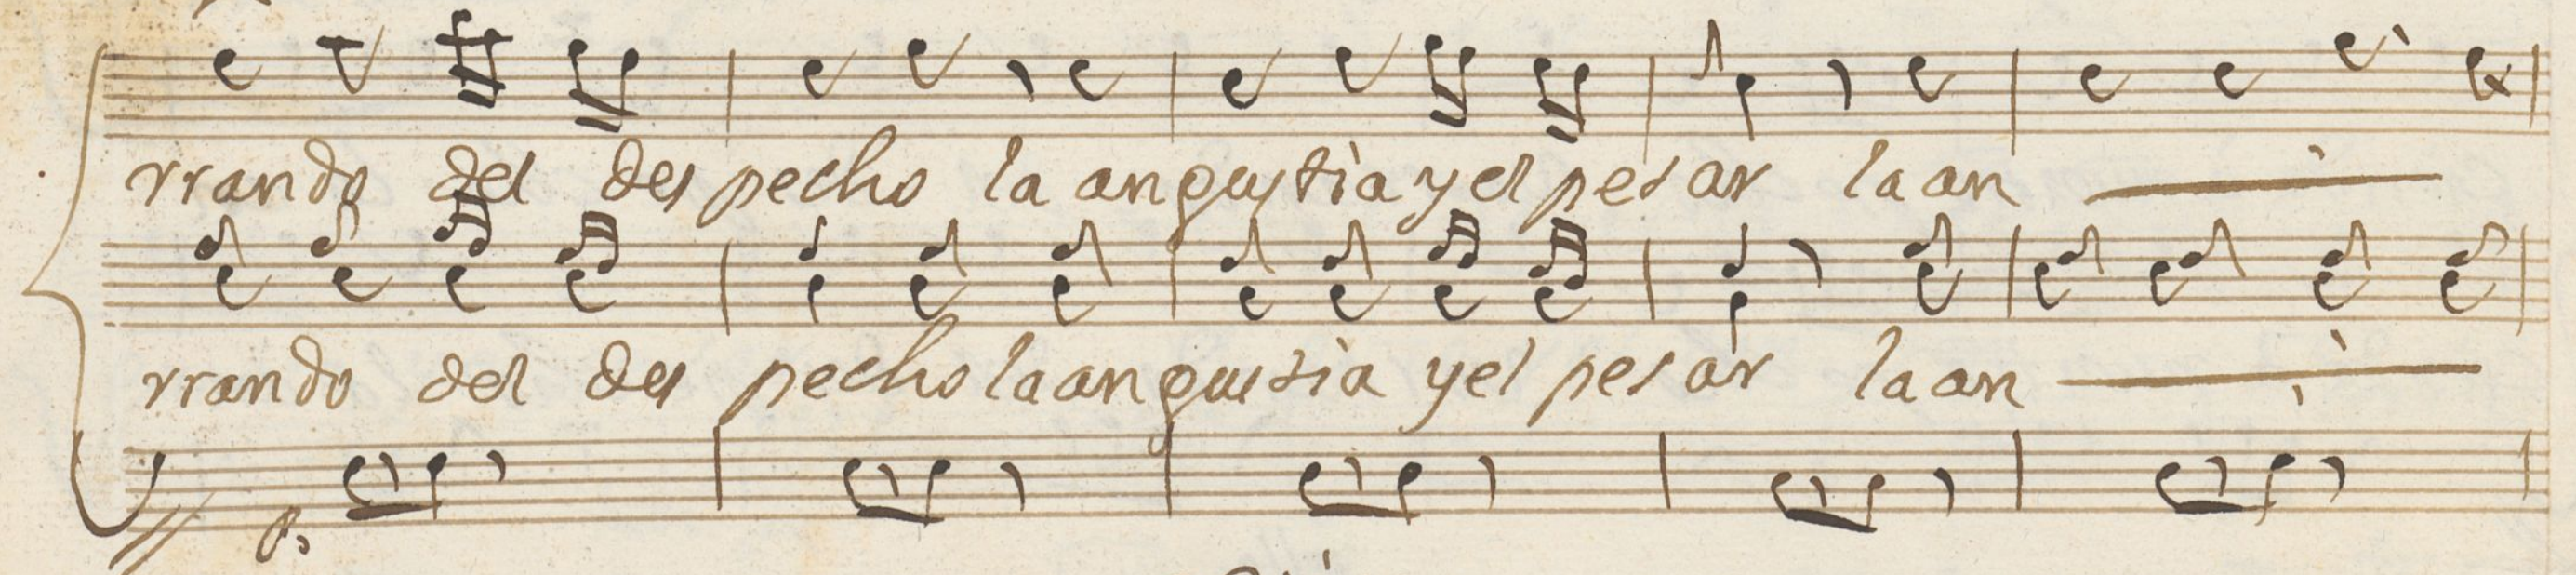 rrando del des pecho la angustia y el pesar la an
rrando del des pecho la angustia y el pesar la an
P.